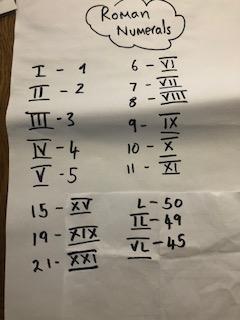 Roman
Numerals
I - 1
II - 2
III - 3
IV - 4
V - 5
6 - VI
7 - VII
8 - VIII
9 - IX
10 - X
11 - XI
15 - XV
19 - XIX
21 - XXI
L - 50
IL - 49
VL - 45